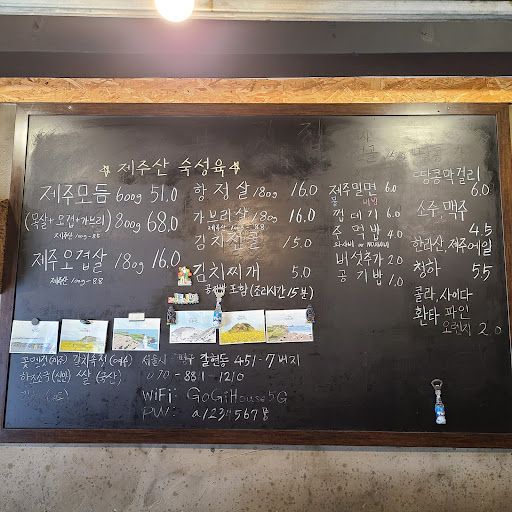 제주산 숙성육
제주모듬 600g 51.0
(목살+오겹+가브리) 800g 68.0
제주산 100g - 8.5
제주오겹살 180g 16.0
제주산 100g - 8.8
항정살 180g 16.0
가브리살 180g 16.0
제주산 100g - 8.8
김치전골 15.0
김치찌개 5.0
공깃밥 포함 (조리시간 15분)
제주밀면 6.0
물 비빔
껍데기 6.0
주먹밥 4.0
버섯추가 2.0
공기밥 1.0
땅콩막걸리
6.0
소주, 맥주
4.5
한라산, 제주에일
청하 5.5
콜라, 사이다
환타 파인
오렌지 2.0
갈현동 451-7 버지
070-8811-1210
WiFi: GoGiHouse5G
PW: a1234567